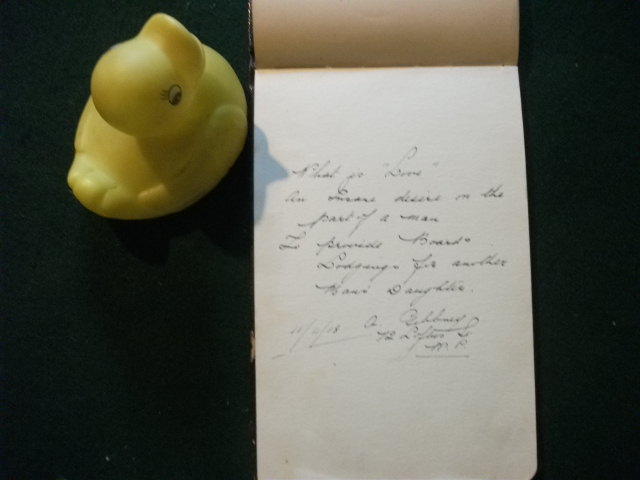 What is "Love"
An Insane desire on the
part of a man
To provide Board &
Lodgings for another
Mans Daughter.
11/6/08 A. Gibbons
72 Loftus St
W. P.